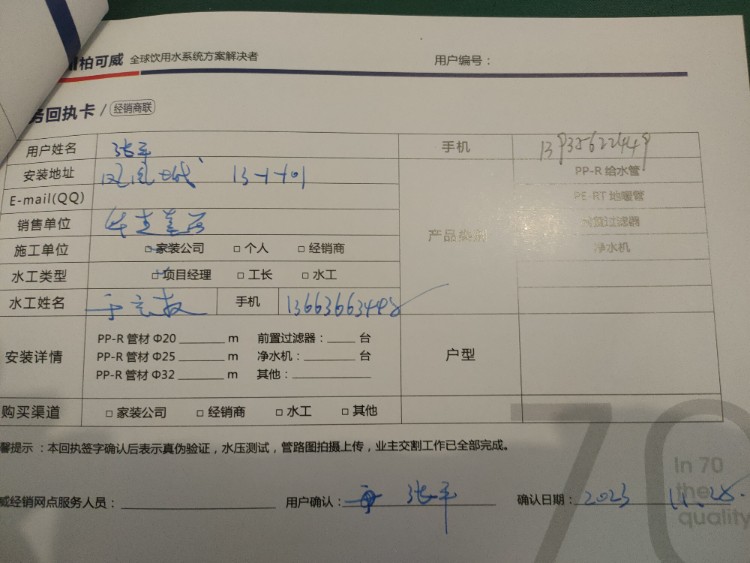 柏可威 全球饮用水系统方案解决者 用户编号：
务回执卡 / 经销商联
用户姓名 张平 手机 13935622449
安装地址 凤凰城 13-1-101 PP-R 给水管
E-mail(QQ) PE-RT 地暖管
销售单位 产品类别 前置过滤器
施工单位 □ 家装公司 □ 个人 □ 经销商 净水机
水工类型 □ 项目经理 □ 工长 □ 水工
水工姓名 手机 13663663498
安装详情 户型
PP-R 管材 Φ20 ______ m 前置过滤器：____ 台
PP-R 管材 Φ25 ______ m 净水机：____ 台
PP-R 管材 Φ32 ______ m 其他：______
购买渠道 □ 家装公司 □ 经销商 □ 水工 □ 其他
馨提示 ：本回执签字确认后表示真伪验证，水压测试，管路图拍摄上传，业主交割工作已全部完成。
70
In 70
the
quality
威经销网点服务人员：______ 用户确认： 张平 确认日期：2023 11.28